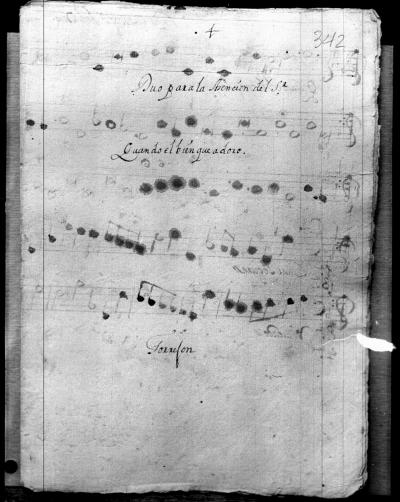 342
Duo para la Asencion del S.r
Quando el bien que adoro.
Torrejon